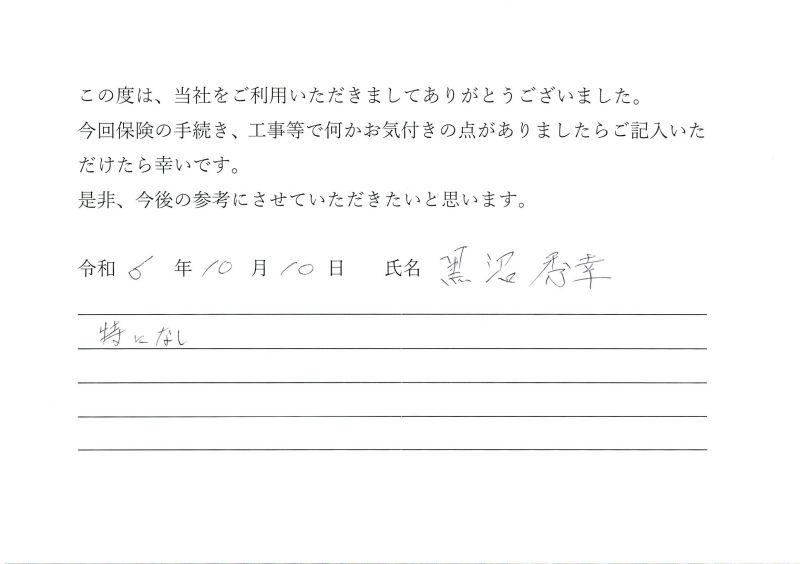 この度は、当社をご利用いただきましてありがとうございました。
今回保険の手続き、工事等で何かお気付きの点がありましたらご記入いた
だけたら幸いです。
是非、今後の参考にさせていただきたいと思います。
令和 6 年 10 月 10 日 氏名 黒沼 秀幸
特になし